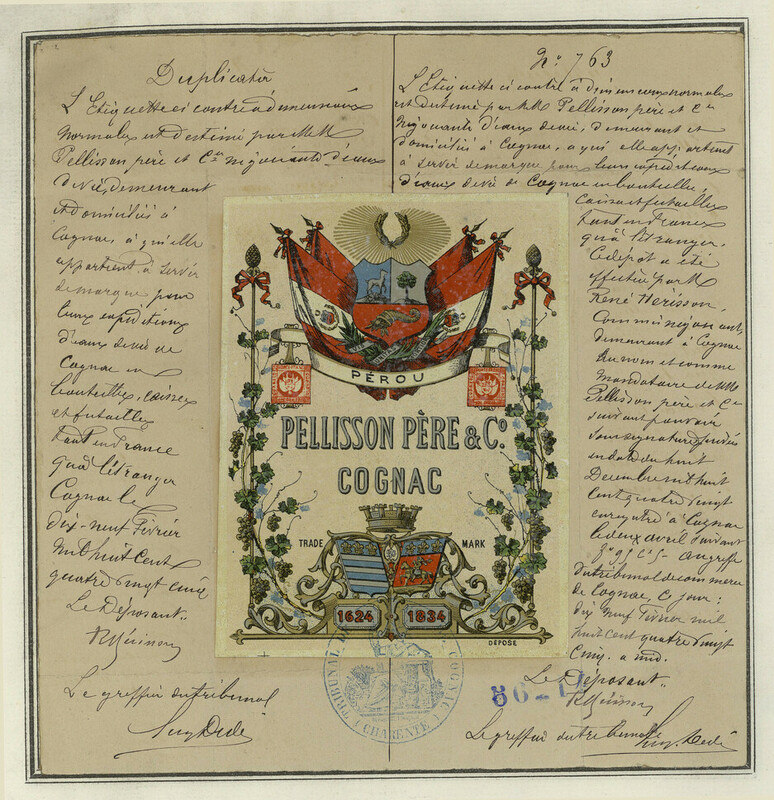 Duplicata
L'Etiquette ci contre a dimensions
normales est destinée par MM
Pellisson père et Cie négociants d'eaux
de vie, demeurant
et domiciliés à
Cognac, à qui elle
appartient à servir
de marque pour
leurs expéditions
d'eaux de vie de
Cognac en
bouteilles, caisses
et futailles
tant en France
qu'à l'étranger
Cognac le
dix-neuf Février
mil huit cent
quatre vingt cinq
Le Déposant
Le greffier du tribunal
No 763
L'Etiquette ci contre à dimensions normales
est destinée par MM Pellisson père et Cie
négociants d'eaux de vie, demeurant et
domiciliés à Cognac, a qui elle appartient
à servir de marque pour leurs expéditions
d'eaux de vie de Cognac en bouteilles,
caisses et futailles
tant en France
qu'à l'étranger.
Ce dépôt a été
effectué par M
René Hérisson,
Commis négociant,
demeurant à Cognac
au nom et comme
mandataire de MM
Pellisson père et Cie
suivant pouvoir
sous signatures privées
en date du huit
Décembre mil huit
cent quatre vingt
enregistré à Cognac
le deux avril suivant
au greffe
du tribunal de commerce
de Cognac, ce jour :
dix neuf Février mil
huit cent quatre vingt
cinq. a midi.
Le Déposant
Le greffier du tribunal
PÉROU
PELLISSON PÈRE & Co.
COGNAC
TRADE MARK
1624 1834
DÉPOSÉ
TRIBUNAL DE COGNAC
(CHARENTE)